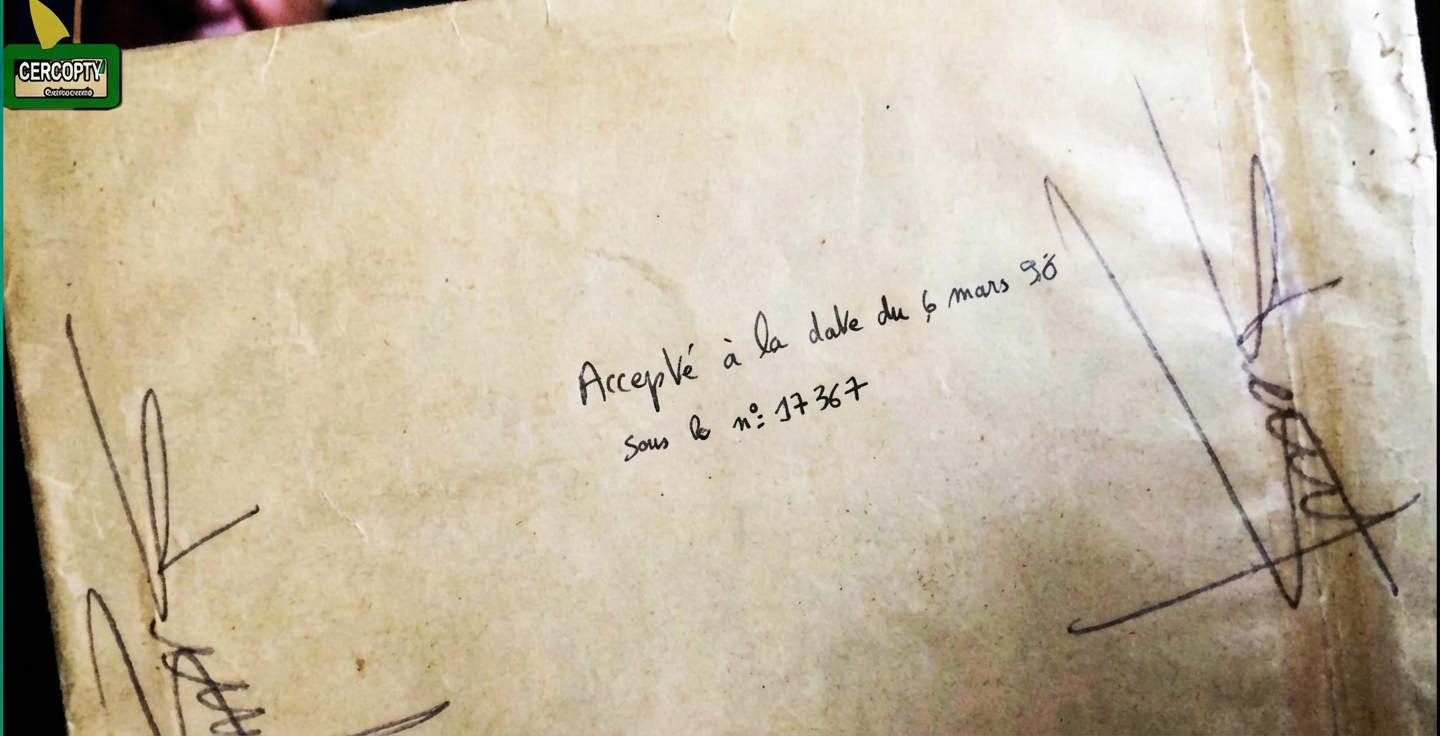 CERCOPTY
Accepté à la date du 6 mars 98
sous le n°: 17367